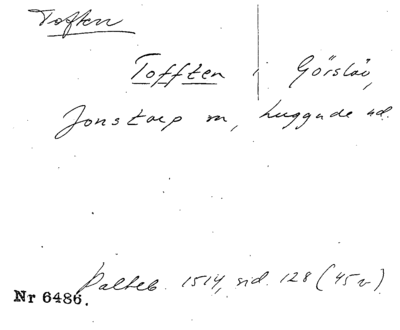 Toften
Tofften i Görslöv,
Jonstorp m, Luggude hd.
Palteb. 1514, sid. 128 (45 v)
Nr 6486.